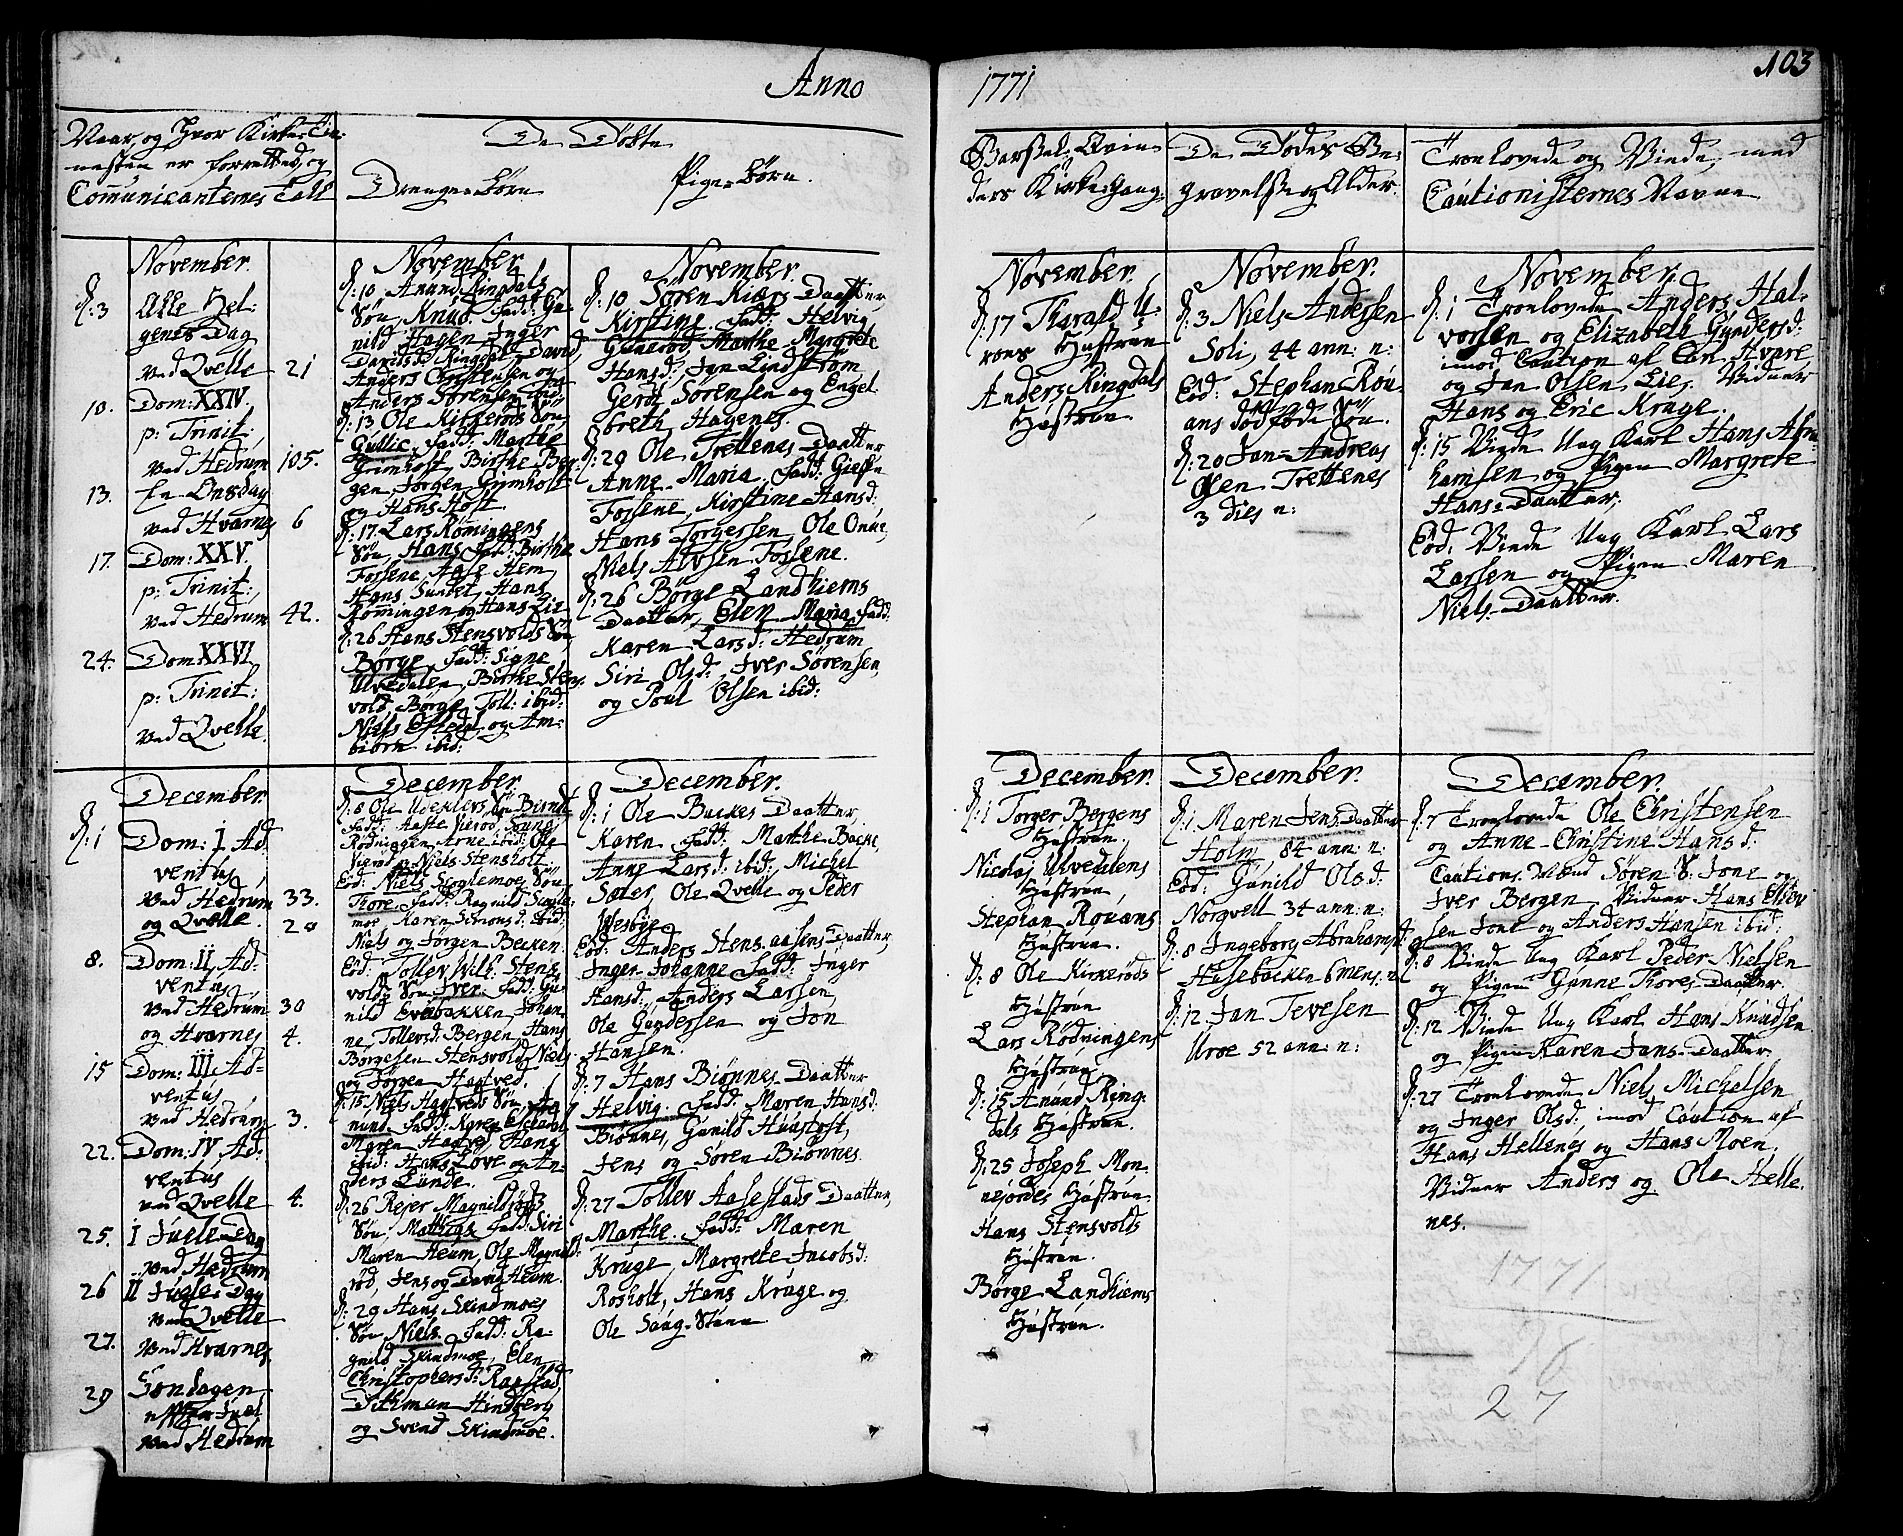 Anno
1771
103
Naar, og Hvor Kirke-Tie-
nesten er forrettet, og
Comunicanternes Tall
De Døbte
Drenge-børn
Pige-børn.
Barsel Qvin-
ders Kirkegang
De Dødes Be-
gravelse og Alder.
Troelovede og Viede, med
Cautionisternes Navne
November.
D: 3 Alle Hel-
genes Dag
ved Qvelle 21
10. Dom: XXIV.
p: Trinit:
ved Hedrum 105.
13. En Onsdag
ved Hvarnes 6
17. Dom: XXV.
p: Trinit:
ved Hedrum 42.
24. Dom XXVI
p: Trinit:
ved Qvelle.
November.
D: 10 Anund Ringdals
Søn, Knud. Fadd: Gu-
nild Hagen, Inger
Davidsd: Ringdal, David,
Anders Christensen og
Anders Sørensen ibid:
D: 13 Ole Kirkerøds Søn,
Gullic. Fadd: Marthe
Grimholt, Birthe Ber-
gen, Jørgen Grimholt
og Hans Holt.
D: 17. Lars Rømingens
Søn, Hans. Fadd: Birthe
Fossene, Aase Hem,
Hans Sundet, Hans
Rømingen og Hans Lie
D: 26 Hans Stensvolds Søn
Børge. Fadd: Signe
Ulvedalen, Birthe Stens-
vold, Børge Toll: ibid:
Niels Øfstedal og Am-
biørn ibid:
November.
D: 10 Søren Kiærs Daatter
Kirstine. Fadd: Helvig
Gunerød, Marthe Margrete
Hansd:, Jyn Lindstrøm
Gerdt Sørensen og Engel-
breth Hagenes.
D: 20 Ole Trettenes Daatter
Anne-Maria. Fadd: Giertru
Fossene, Kirstine Hansd:
Hans Torgersen, Ole Onne,
Niels Alvsen Fossene.
D: 26 Børge Landhiems
Daatter, Elen Maria. Fadd:
Karen Larsd: Hedrum
Siri Olsd:, Iver Sørensen,
og Poul Olsen ibid:
November.
D: 17 Tharald U-
roes Hustrue
Anders Ringdals
Hustrue.
November.
D: 3 Niels Andersen
Soli, 44 ann: n:
Eod: Stephan Rou-
ans dødfødde Søn.
D: 20 Jan-Andreas
Olsen Trettenes
3 dies n:
November.
D: 1 Troelovede Anders Hal-
vorsen og Elizabeth Gundersd:
imod Caution af Can. Hvare
og Jan Olsen Lie. Vidner
Hans og Eric Kruge.
D: 15 Viede Ung Karl Hans Abra-
hamsen og Pigen Margrete
Hans-Daatter,
Eod: Viede Ung Karl Lars
Larsen og Pigen Maren
Niels-Daatter.
December.
D: 1 Dom: I Ad-
ventus,
ved Hedrum 33.
og Qvelle. 20
8. Dom: II Ad-
ventus,
ved Hedrum 30
og Hvarnes 4.
15 Dom: III Ad-
ventus,
ved Hedrum 3.
22. Dom: IV Ad-
ventus
ved Qvelle 4.
25. I Juele-Dag
ved Hedrum
26 II Juele-Dag
ved Qvelle
27. ved Hvarnes
29 Søndagen
efter Juel
ved Hedrum
December.
D: 8 Ole Søn Bernt
Fadd: Aaste Vierød,
Rødningen, Arne ibid: Ole
Vierød og Niels Stensholt:
Eod: Niels Skoglemoes Søn
Thore. Fadd: Ragnild Skogle-
moe, Karen Simonsd: ibid:
Niels og Jørgen Becken.
Eod: Tollev Wilh. Stens-
vold: Søn Iver. Fadd: Gu-
nild Evebakken, Johan-
ne, Tollevsd: Bergen, Hans
Børgesen Stensvold, Niels
og Jørgen Hagtved.
D: 15 Niels Hagtveds Søn Aa-
mund. Fadd: Karen Eftedal
Maren Hagtved, Hans
ibid: Hans Love og An-
ders Lunde.
D: 26 Rejer Magnildrøds
Søn, Mathias. Fadd: Siri
Maren Heum, Ole Magnild-
rød, Jens og David Heum.
D: 29 Hans Skindmoes
Søn, Niels. Fadd: Ra-
gnild Skindmoe, Elen
Christophersd: Rarstad,
Dithman Hindberg
og Svend Skindmoe.
December.
D: 1 Ole Backes Daatter
Karen. Fadd: Marthe Backe,
Anne Larsd: ibid:, Michel
Sæter, Ole Qvelle og Peder
Wesbye
Eod: Anders Stens-aasens Daatter,
Inger Johanne. Fadd: Inger
Hansd:, Anders Larsen,
Ole Gundersen og Jon
Hansen.
D: 7 Hans Biønnes-Daatter
Helvig. Fadd: Maren Hansd:
Biønnes, Gunild Haastoft,
Jens og Søren Biønnes.
D: 27 Tollev Aasestads Daatter,
Marthe. Fadd: Maren
Kruge, Margrete Jacobsd:
Rosholt, Hans Kruge og
Ole Saug-Støen
December.
D: 1 Torger Bergens
Hustrue.
Nicolaj Ulvedalens
Hustrue
Stephan Rouans
Hustrue.
D: 8 Ole Kirkerøds
Hustrue
Lars Rødningens
Hustrue
D: 15 Anund Ring-
dals Hustrue.
D: 25 Joseph Mon-
nejordes Hustrue
Hans Stensvolds
Hustrue.
Børge Landhiems
Hustrue.
December.
D: 1 Maren Jens-Daatter
Holm, 84 ann: n:
Eod: Gunild Olsd:
Norgvell 34 ann: n:
D: 8 Ingeborg Abrahamsd:
Husebacken 6 mens: n:
D: 12 Jan Tevesen
Uroe 52 ann: n:
December.
D: 7 Troelovede Ole Christensen
og Anne-Christine Hansd:
Cautions-Mænd Søren S: Jone og
Iver Bergen, Vidner Hans Ellev-
sen Jone og Anders Hansen ibid:
D: 8 Viede Ung Karl Peder Nielsen
og Pigen Gønne Thores-Daatter,
D: 12 Viede Ung Karl Hans Knudsen
og Pigen Karen Jans-Daatter,
D: 27 Troelovede Niels Michelsen
og Inger Olsd:, imod Caution af
Hans Hellenes og Hans Moen,
Vidner Anders og Ole Helle-
nes.
1771
27